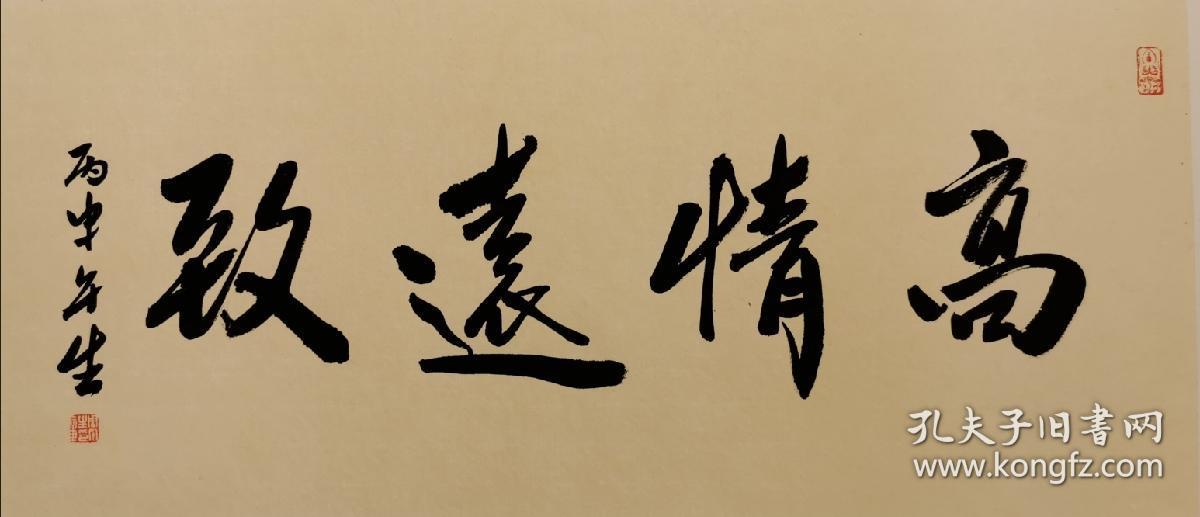 高情遠致
丙申年生
孔夫子旧書网
www.kongfz.com